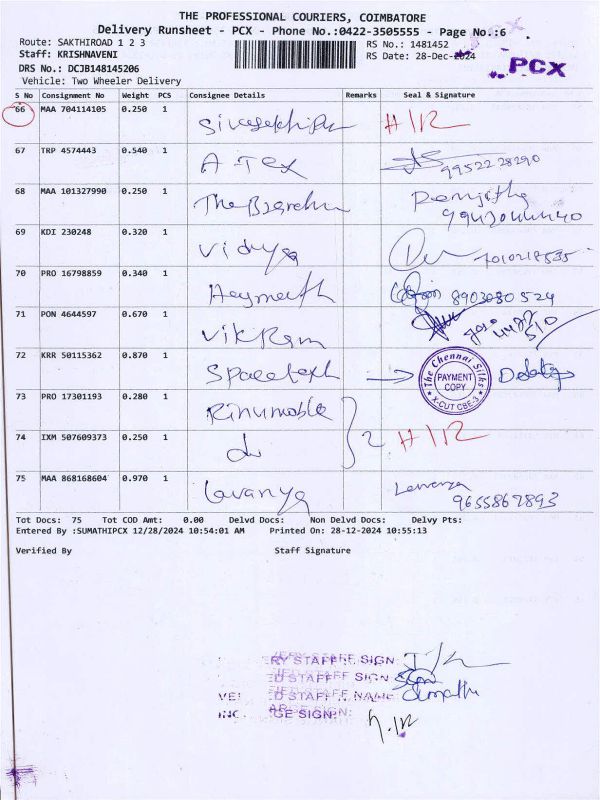 THE PROFESSIONAL COURIERS, COIMBATORE
Delivery Runsheet - PCX - Phone No.:0422-3505555 - Page No.:6
Route: SAKTHIROAD 1 2 3
RS No.: 1481452
Staff: KRISHNAVENI
RS Date: 28-Dec-2024
DRS No.: DCJB148145206
PCX
Vehicle: Two Wheeler Delivery
S No Consignment No Weight PCS Consignee Details Remarks Seal & Signature
66 MAA 704114105 0.250 1
67 TRP 4574443 0.540 1 A Tex 99522 28290
68 MAA 101327990 0.250 1
69 KDI 230248 0.320 1 Vidya
70 PRO 16798859 0.340 1 8903080524
71 PON 4644597 0.670 1 Vikram
72 KRR 50115362 0.870 1
The Chennai Silks
PAYMENT COPY
X-CUT CBE-3
73 PRO 17301193 0.280 1
74 IXM 507609373 0.250 1 do 2
75 MAA 868168604 0.970 1 Lavanya 9655867893
Tot Docs: 75 Tot COD Amt: 0.00 Delvd Docs: Non Delvd Docs: Delvy Pts:
Entered By :SUMATHIPCX 12/28/2024 10:54:01 AM Printed On: 28-12-2024 10:55:13
Verified By Staff Signature
STAFF SIGN
STAFF SIGN
STAFF NAME: Sumathi
SIGN: